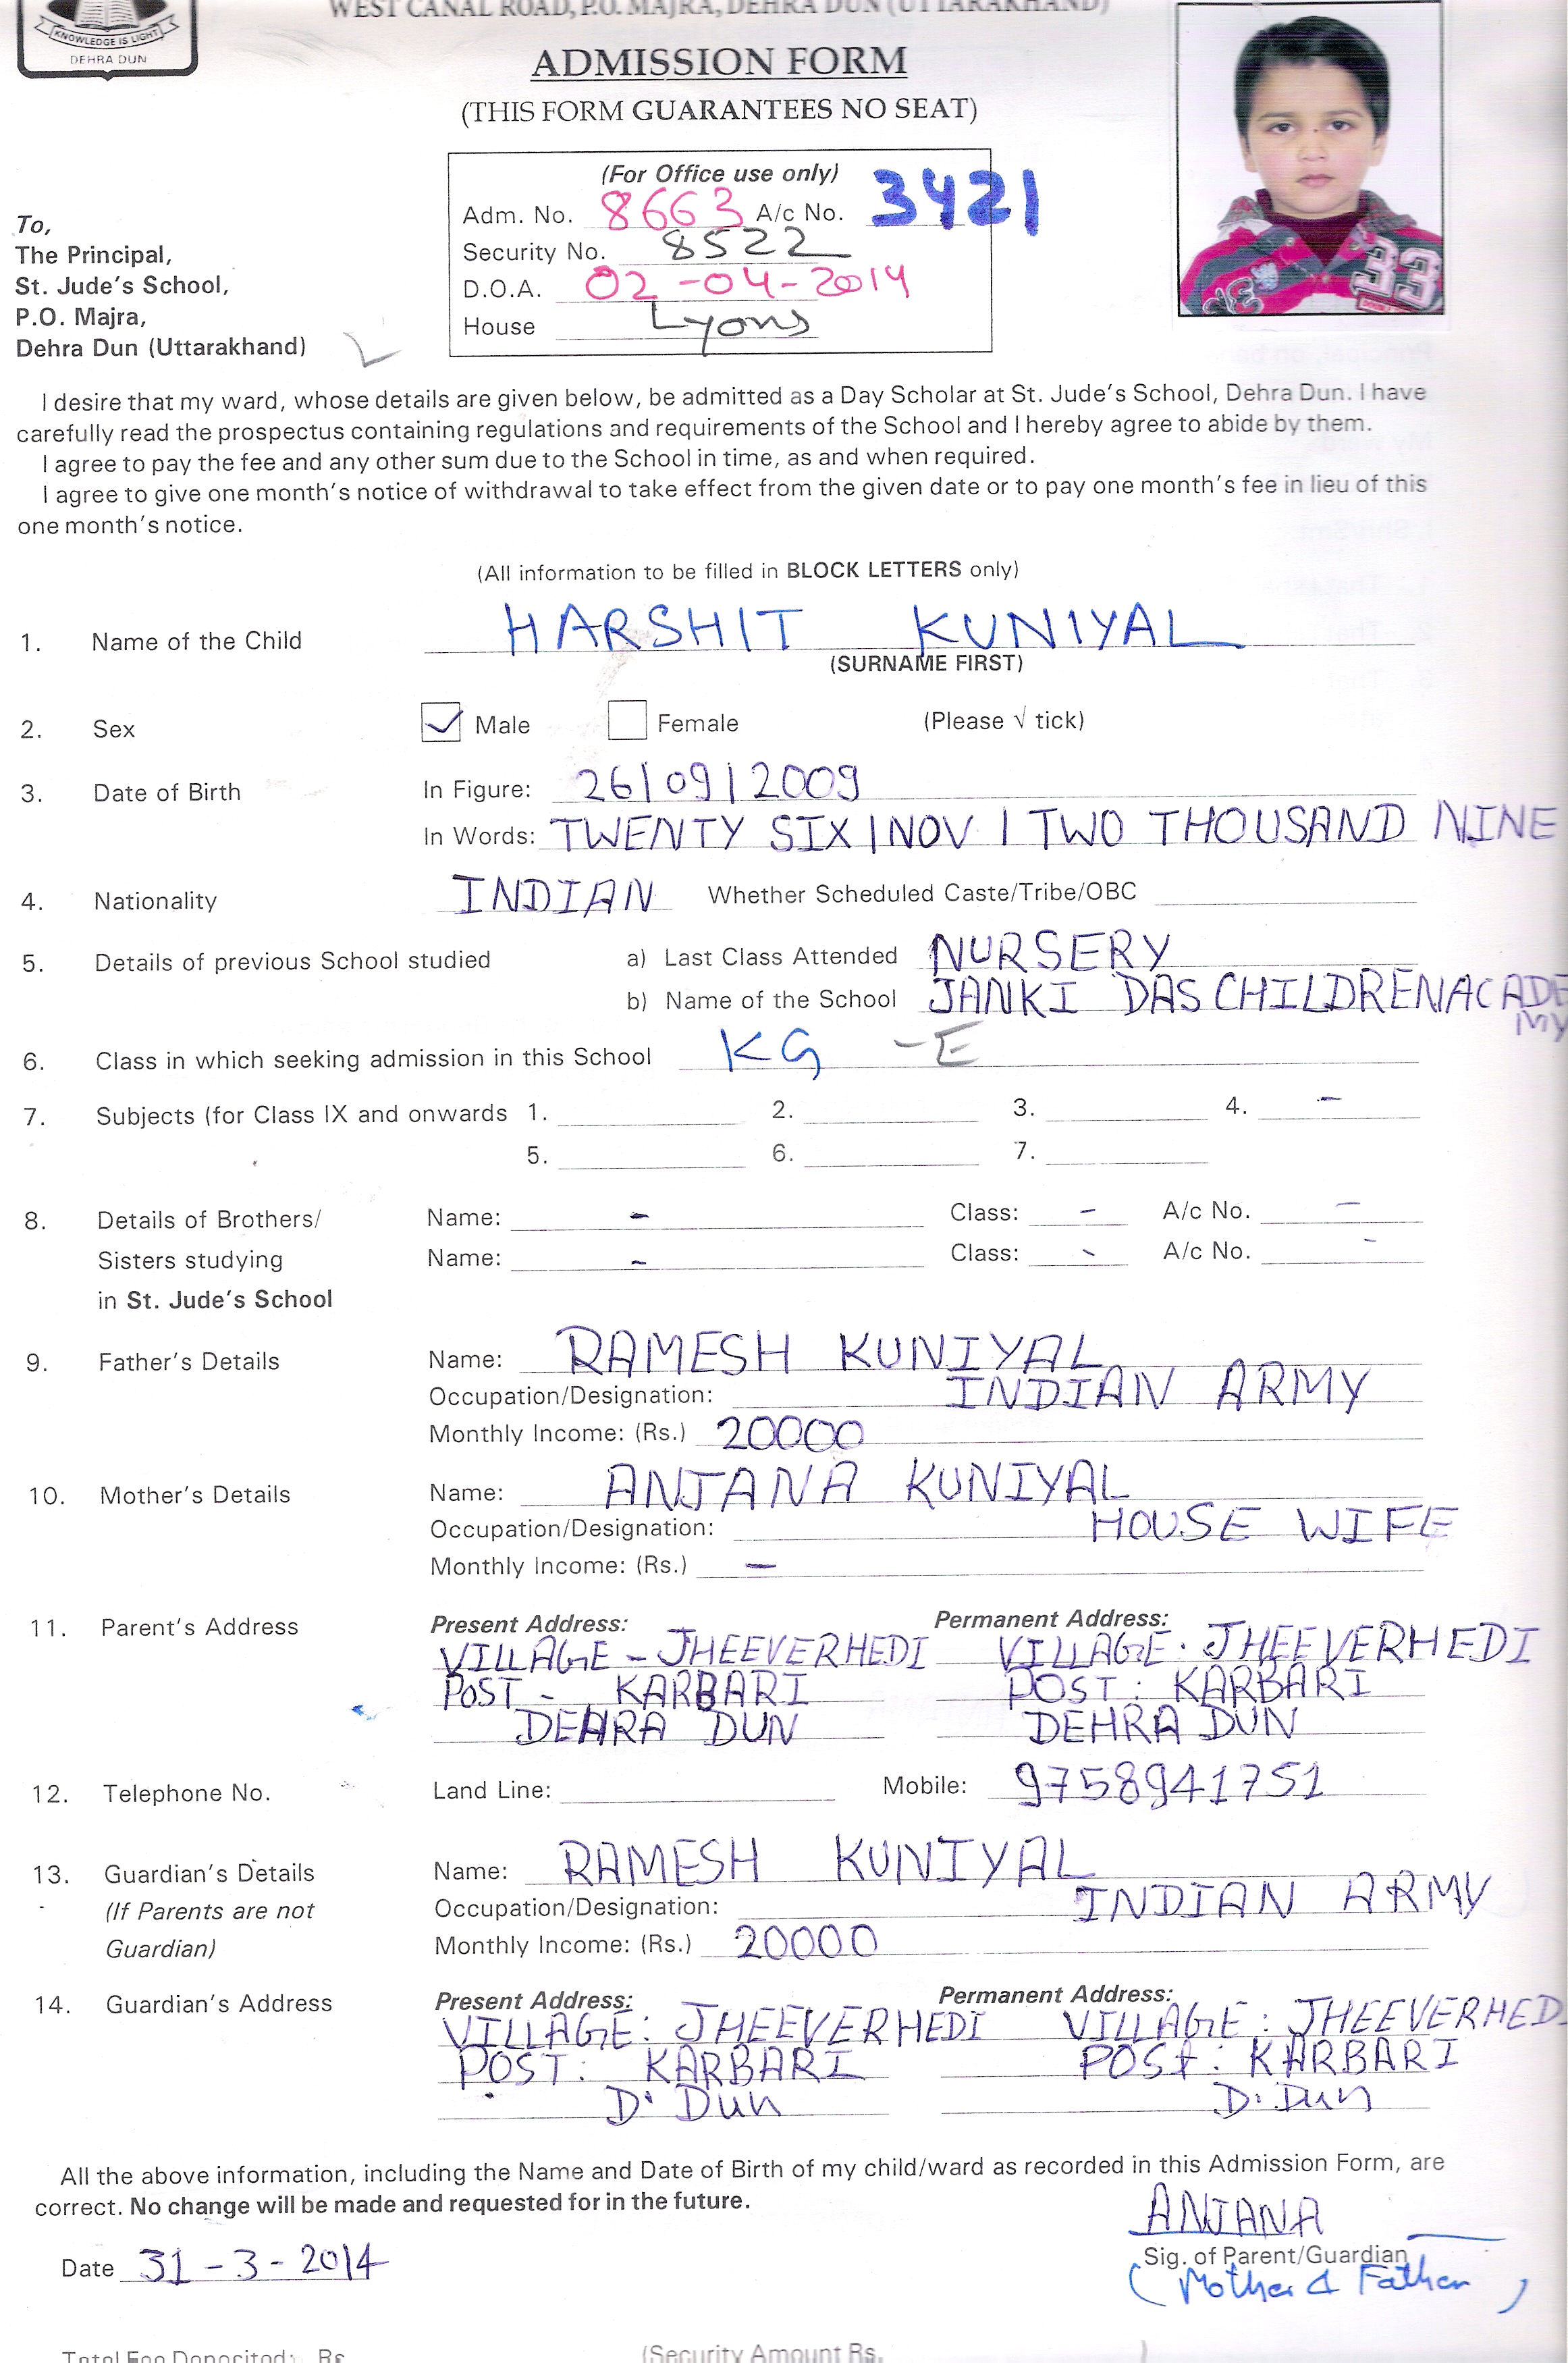 WEST CANAL ROAD, P.O. MAJRA, DEHRA DUN (UTTARAKHAND)
KNOWLEDGE IS LIGHT
DEHRA DUN
ADMISSION FORM
(THIS FORM GUARANTEES NO SEAT)
(For Office use only)
Adm. No. 8663 A/c No. 3421
Security No. 8522
D.O.A. 02-04-2014
House Lyons
To,
The Principal,
St. Jude's School,
P.O. Majra,
Dehra Dun (Uttarakhand)
I desire that my ward, whose details are given below, be admitted as a Day Scholar at St. Jude's School, Dehra Dun. I have
carefully read the prospectus containing regulations and requirements of the School and I hereby agree to abide by them.
I agree to pay the fee and any other sum due to the School in time, as and when required.
I agree to give one month's notice of withdrawal to take effect from the given date or to pay one month's fee in lieu of this
one month's notice.
(All information to be filled in BLOCK LETTERS only)
1. Name of the Child HARSHIT KUNIYAL
(SURNAME FIRST)
2. Sex ✓ Male Female (Please √ tick)
3. Date of Birth In Figure: 26/09/2009
In Words: TWENTY SIX/NOV / TWO THOUSAND NINE
4. Nationality INDIAN Whether Scheduled Caste/Tribe/OBC
5. Details of previous School studied a) Last Class Attended NURSERY
b) Name of the School JANKI DAS CHILDREN ACADEMY
6. Class in which seeking admission in this School KG - E
7. Subjects (for Class IX and onwards 1. 2. 3. 4. -
5. 6. 7.
8. Details of Brothers/ Name: - Class: - A/c No. -
Sisters studying Name: - Class: - A/c No. -
in St. Jude's School
9. Father's Details Name: RAMESH KUNIYAL
Occupation/Designation: INDIAN ARMY
Monthly Income: (Rs.) 20000
10. Mother's Details Name: ANJANA KUNIYAL
Occupation/Designation: HOUSE WIFE
Monthly Income: (Rs.) -
11. Parent's Address Present Address: Permanent Address:
VILLAGE - JHEEVERHEDI VILLAGE. JHEEVERHEDI
POST - KARBARI POST : KARBARI
DEHRA DUN DEHRA DUN
12. Telephone No. Land Line: Mobile: 9758941751
13. Guardian's Details Name: RAMESH KUNIYAL
(If Parents are not Occupation/Designation: INDIAN ARMY
Guardian) Monthly Income: (Rs.) 20000
14. Guardian's Address Present Address: Permanent Address:
VILLAGE: JHEEVERHEDI VILLAGE : JHEEVERHED
POST: KARBARI POSt : KARBARI
D. Dun D. Dun
All the above information, including the Name and Date of Birth of my child/ward as recorded in this Admission Form, are
correct. No change will be made and requested for in the future.
ANJANA
Date 31-3-2014 Sig. of Parent/Guardian
(Mother & Father)
Total Fee Deposited: Rs (Security Amount Rs.
33